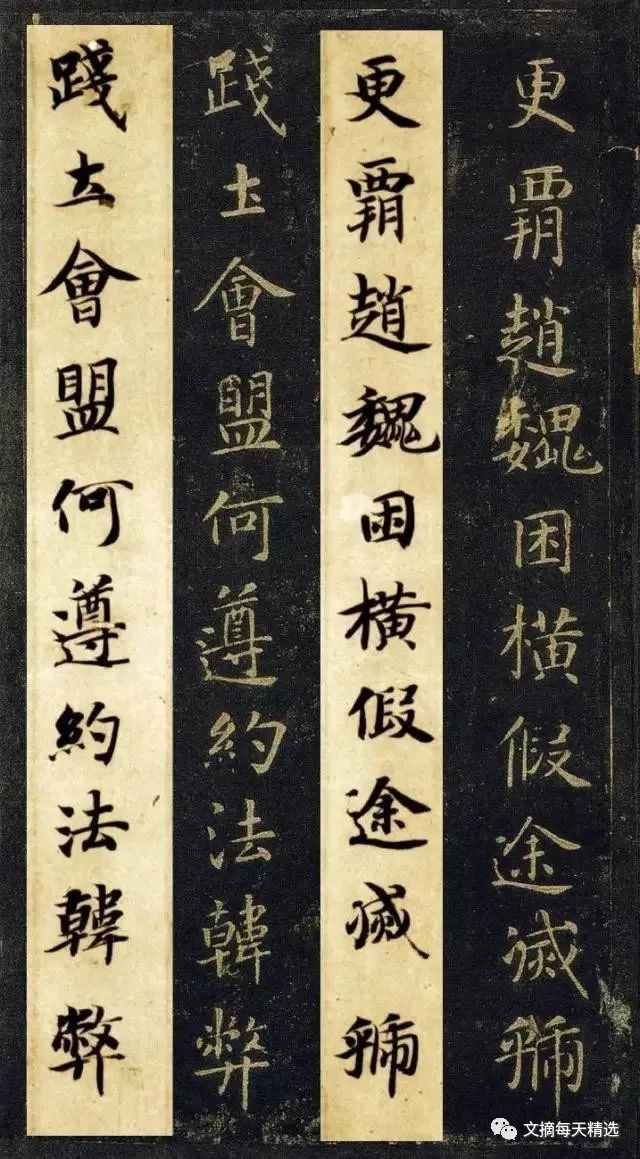 更覇趙魏困橫假途滅虢
更覇趙魏困橫假途滅虢
踐土會盟何遵約法韓弊
踐土會盟何遵約法韓弊
文摘每天精选